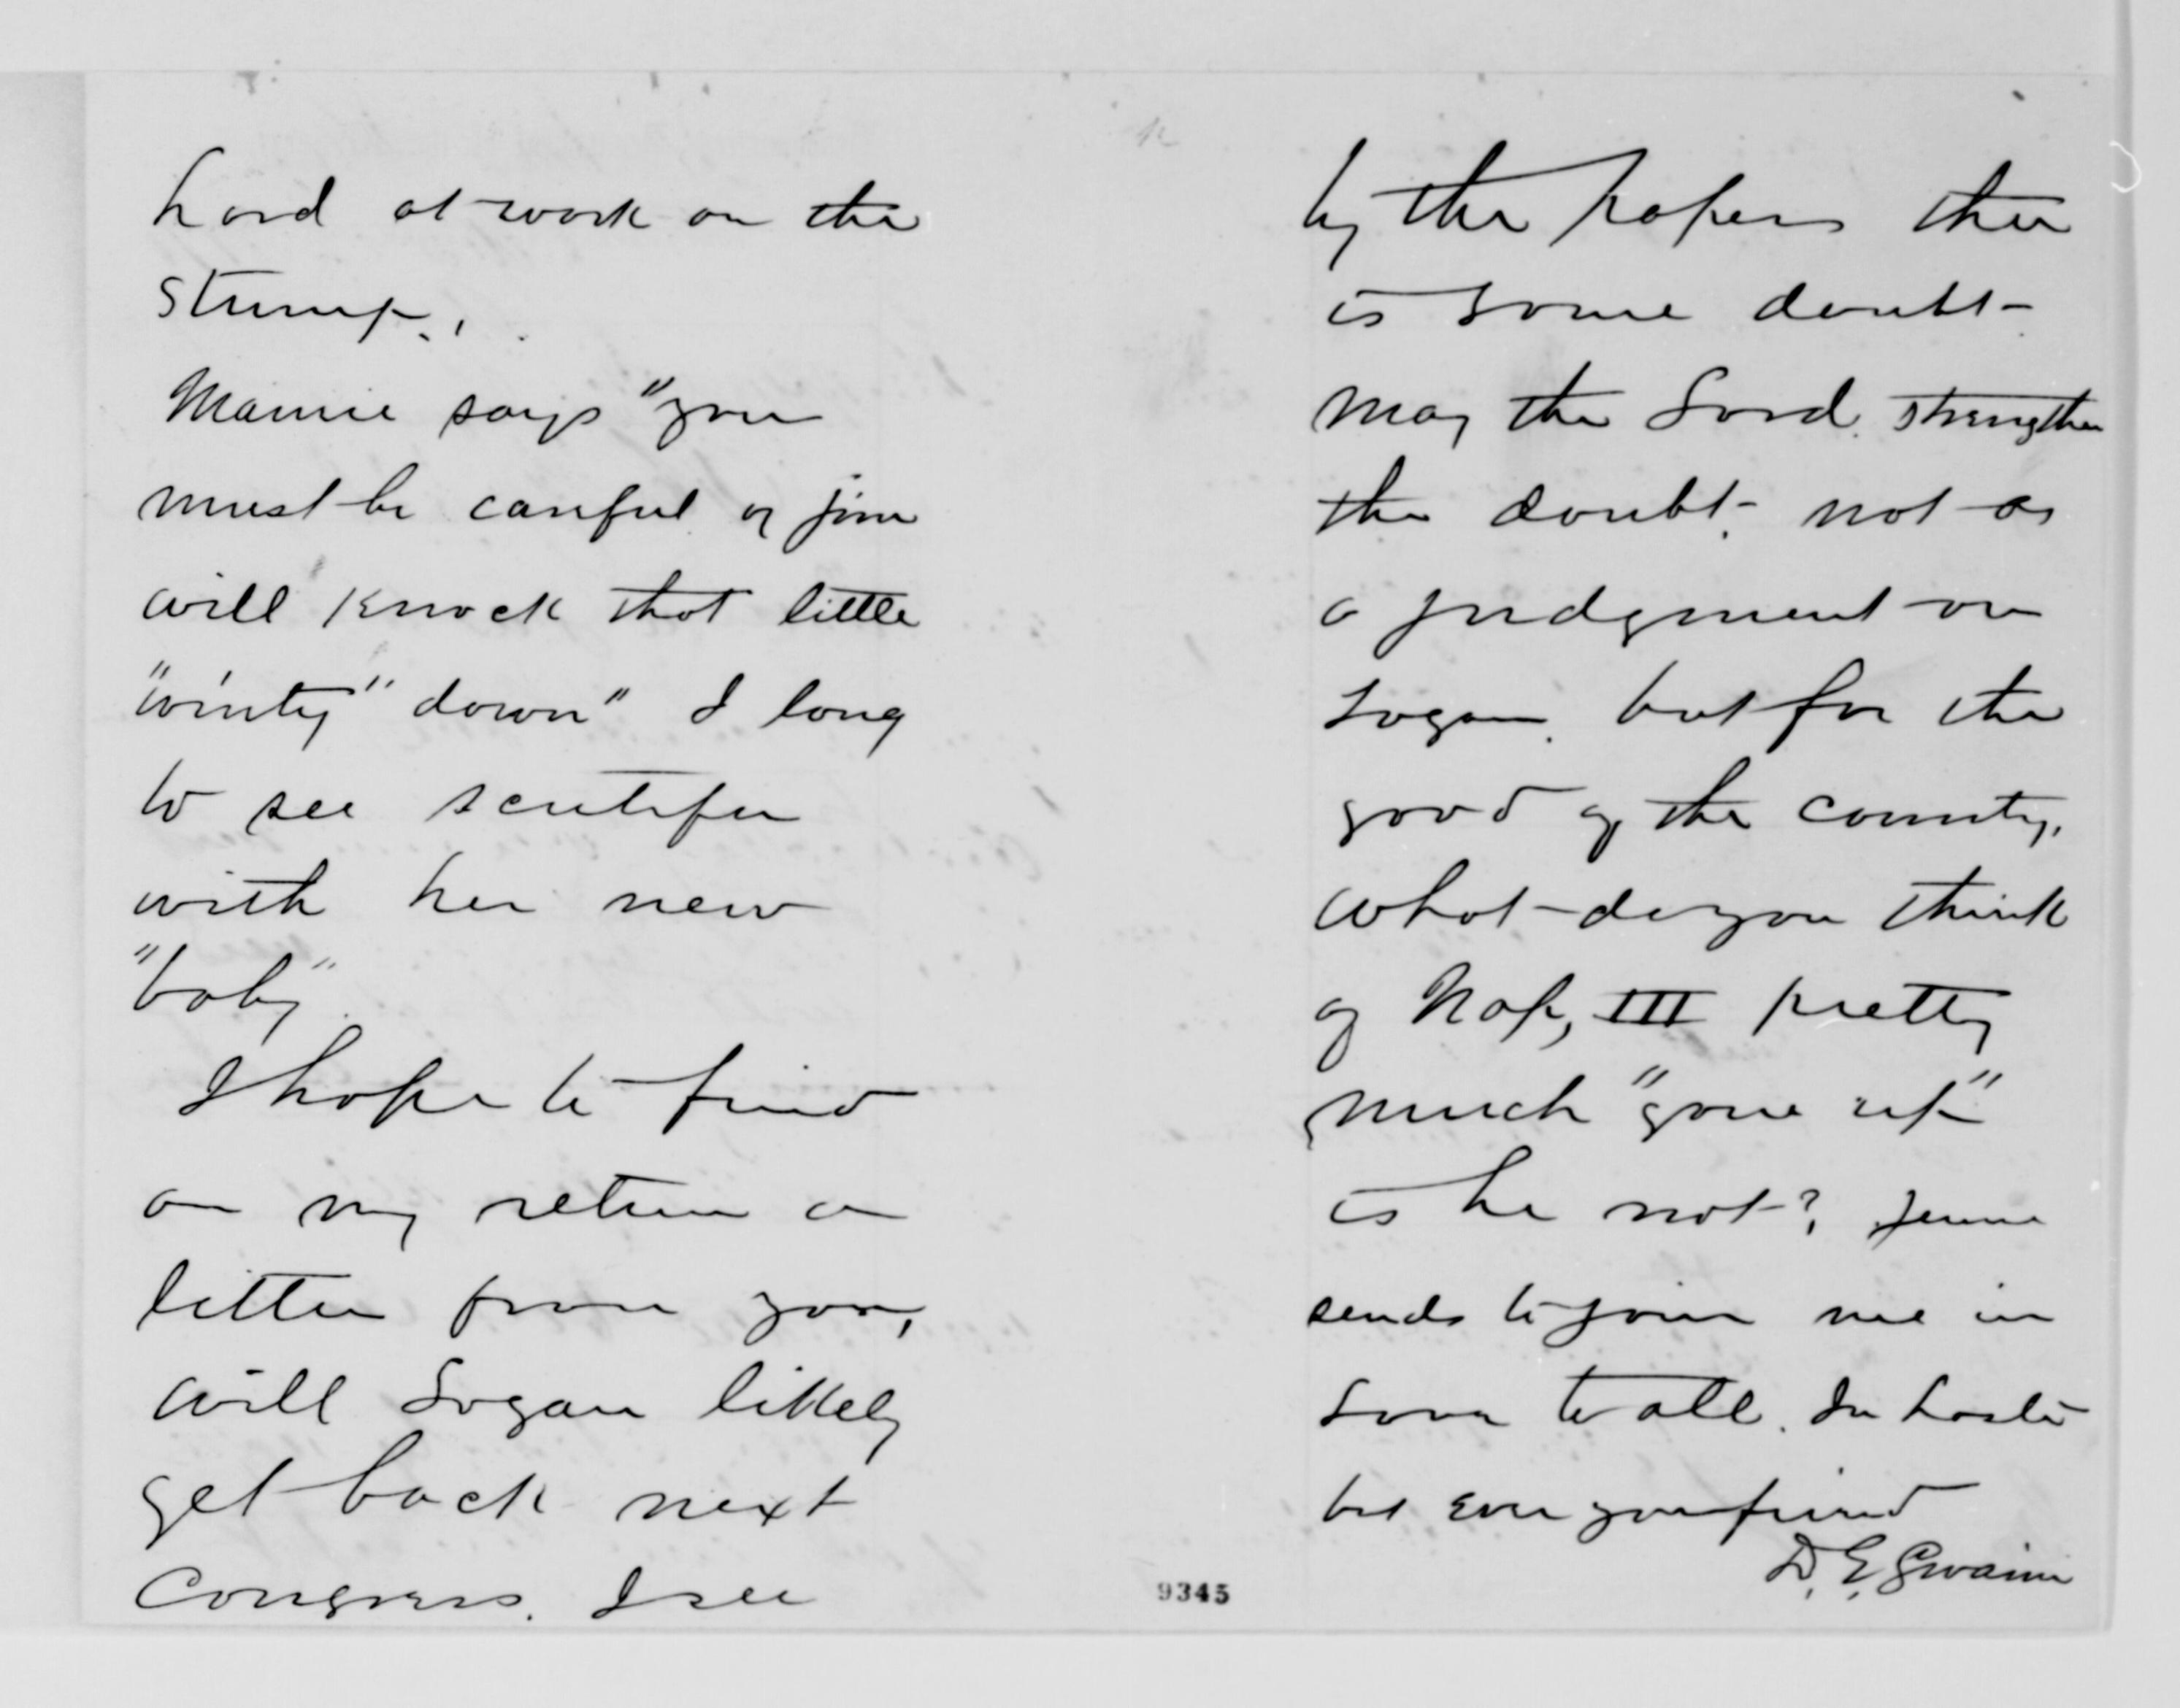 hard at work on the
stump.
Mamie says "you
must be careful or jim
will knock that little
"winty" down" I long
to see
with her new
"baby".
I hope to find
on my return a
letter from you,
will Logan likely
get back next
Congress. I see
by the papers there
is some doubt –
may the Lord strengthen
the doubt, not as
a judgment on
Logan, but for the
good of the country.
What do you think
of Nap, III pretty
much "gone up"
is he not? Jennie
sends to join me in
love to all. In haste
but ever your friend
D. E. Swaim
9345